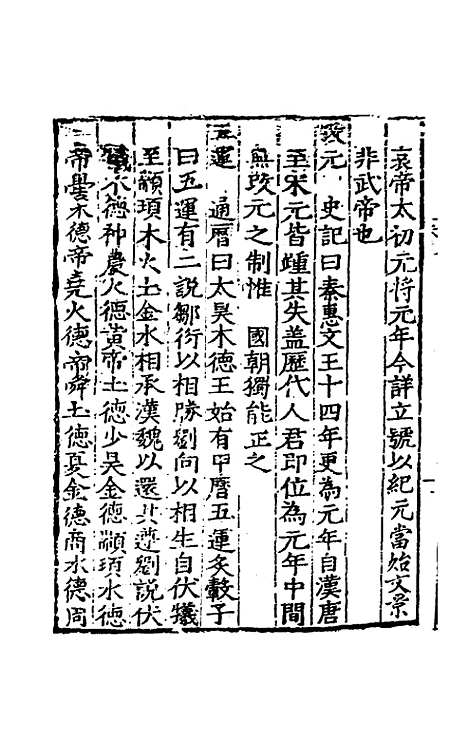 哀帝太初元将元年今詳立號以紀元當始文景
非武帝也
改元 史記曰秦惠文王十四年更為元年自漢唐
至宋元皆踵其失盖歷代人君即位為元年中間
無改元之制惟 國朝獨能正之
五運 通暦曰太昊木德王始有甲暦五運炙轂子
曰五運有二説鄒衍以相勝劉向以相生自伏犧
至顓頊木火土金水相承漢魏以還共遵劉説伏
犧木德神農火德黄帝土德少昊金德顓頊水德
帝嚳木德帝堯火德帝舜土德夏金德商水德周